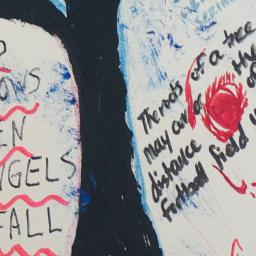 OWS
EN
NGELS
FALL
The roots of a tree
may cover the
distance of
football field